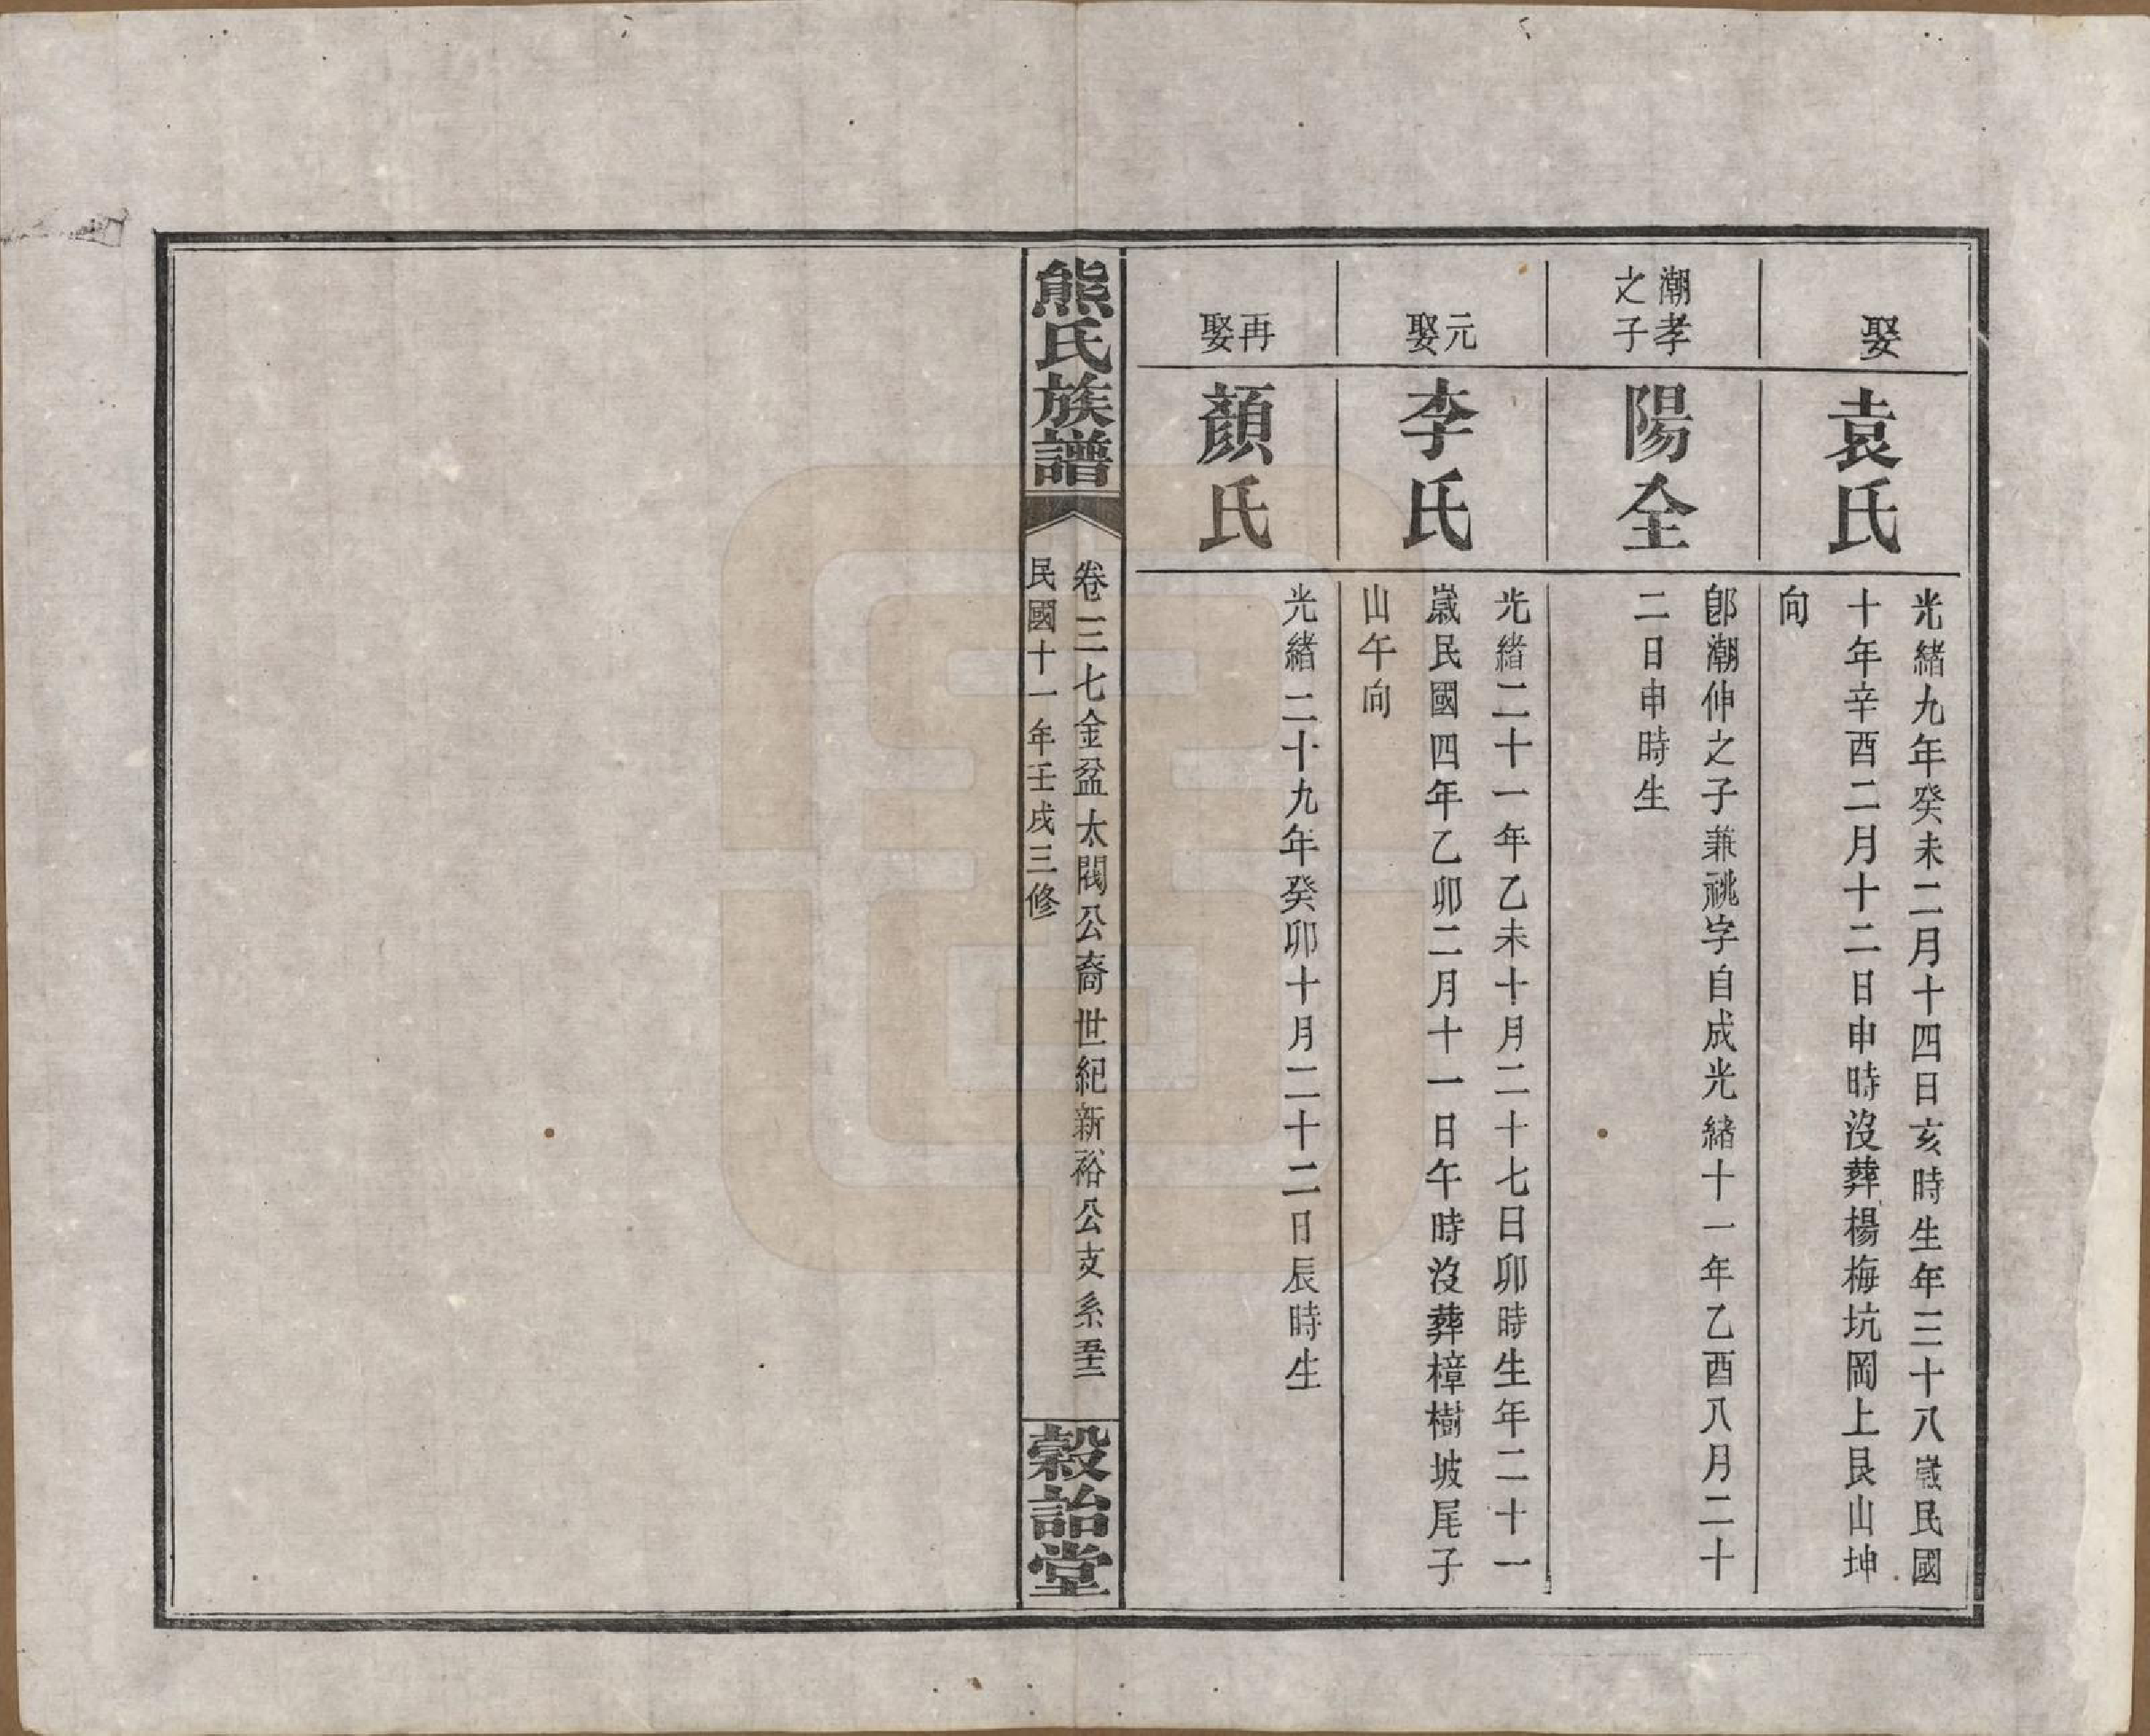 娶
袁氏
光緒九年癸未二月十四日亥時生年三十八歲民國
十年辛酉二月十二日申時沒葬楊梅坑岡上艮山坤
向
潮孝
之子
陽全
卽潮伸之子兼祧字自成光緒十一年乙酉八月二十
二日申時生
元
娶
李氏
光緒二十一年乙未十月二十七日卯時生年二十一
歲民國四年乙卯二月十一日午時沒葬樟樹坡尾子
山午向
再
娶
顏氏
光緒二十九年癸卯十月二十二日辰時生
熊氏族譜
卷三七金盆太閥公裔世紀新裕公支系五十二
民國十一年壬戌三修
榖詒堂